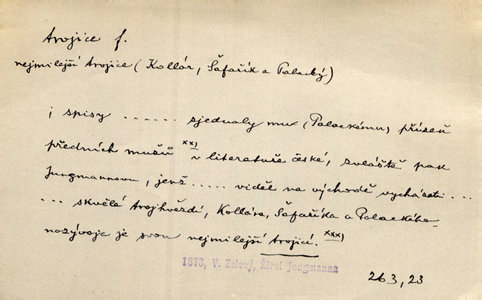 trojice f.
nejmilejší trojice (Kollár, Šafařík a Palacký)
i spisy ...... sjednaly mu (Palackému) přízeň
předních mužů xx) v literatuře české, zvláště pak
Jungmannovu, jenž ..... viděl na východě vycházeti ...
... skvělé trojhvězdí, Kollára, Šafaříka a Palackého
nazývaje je svou nejmilejší trojicí. xxx)
1873, V. Zelený, Život Jungmanna
263,23